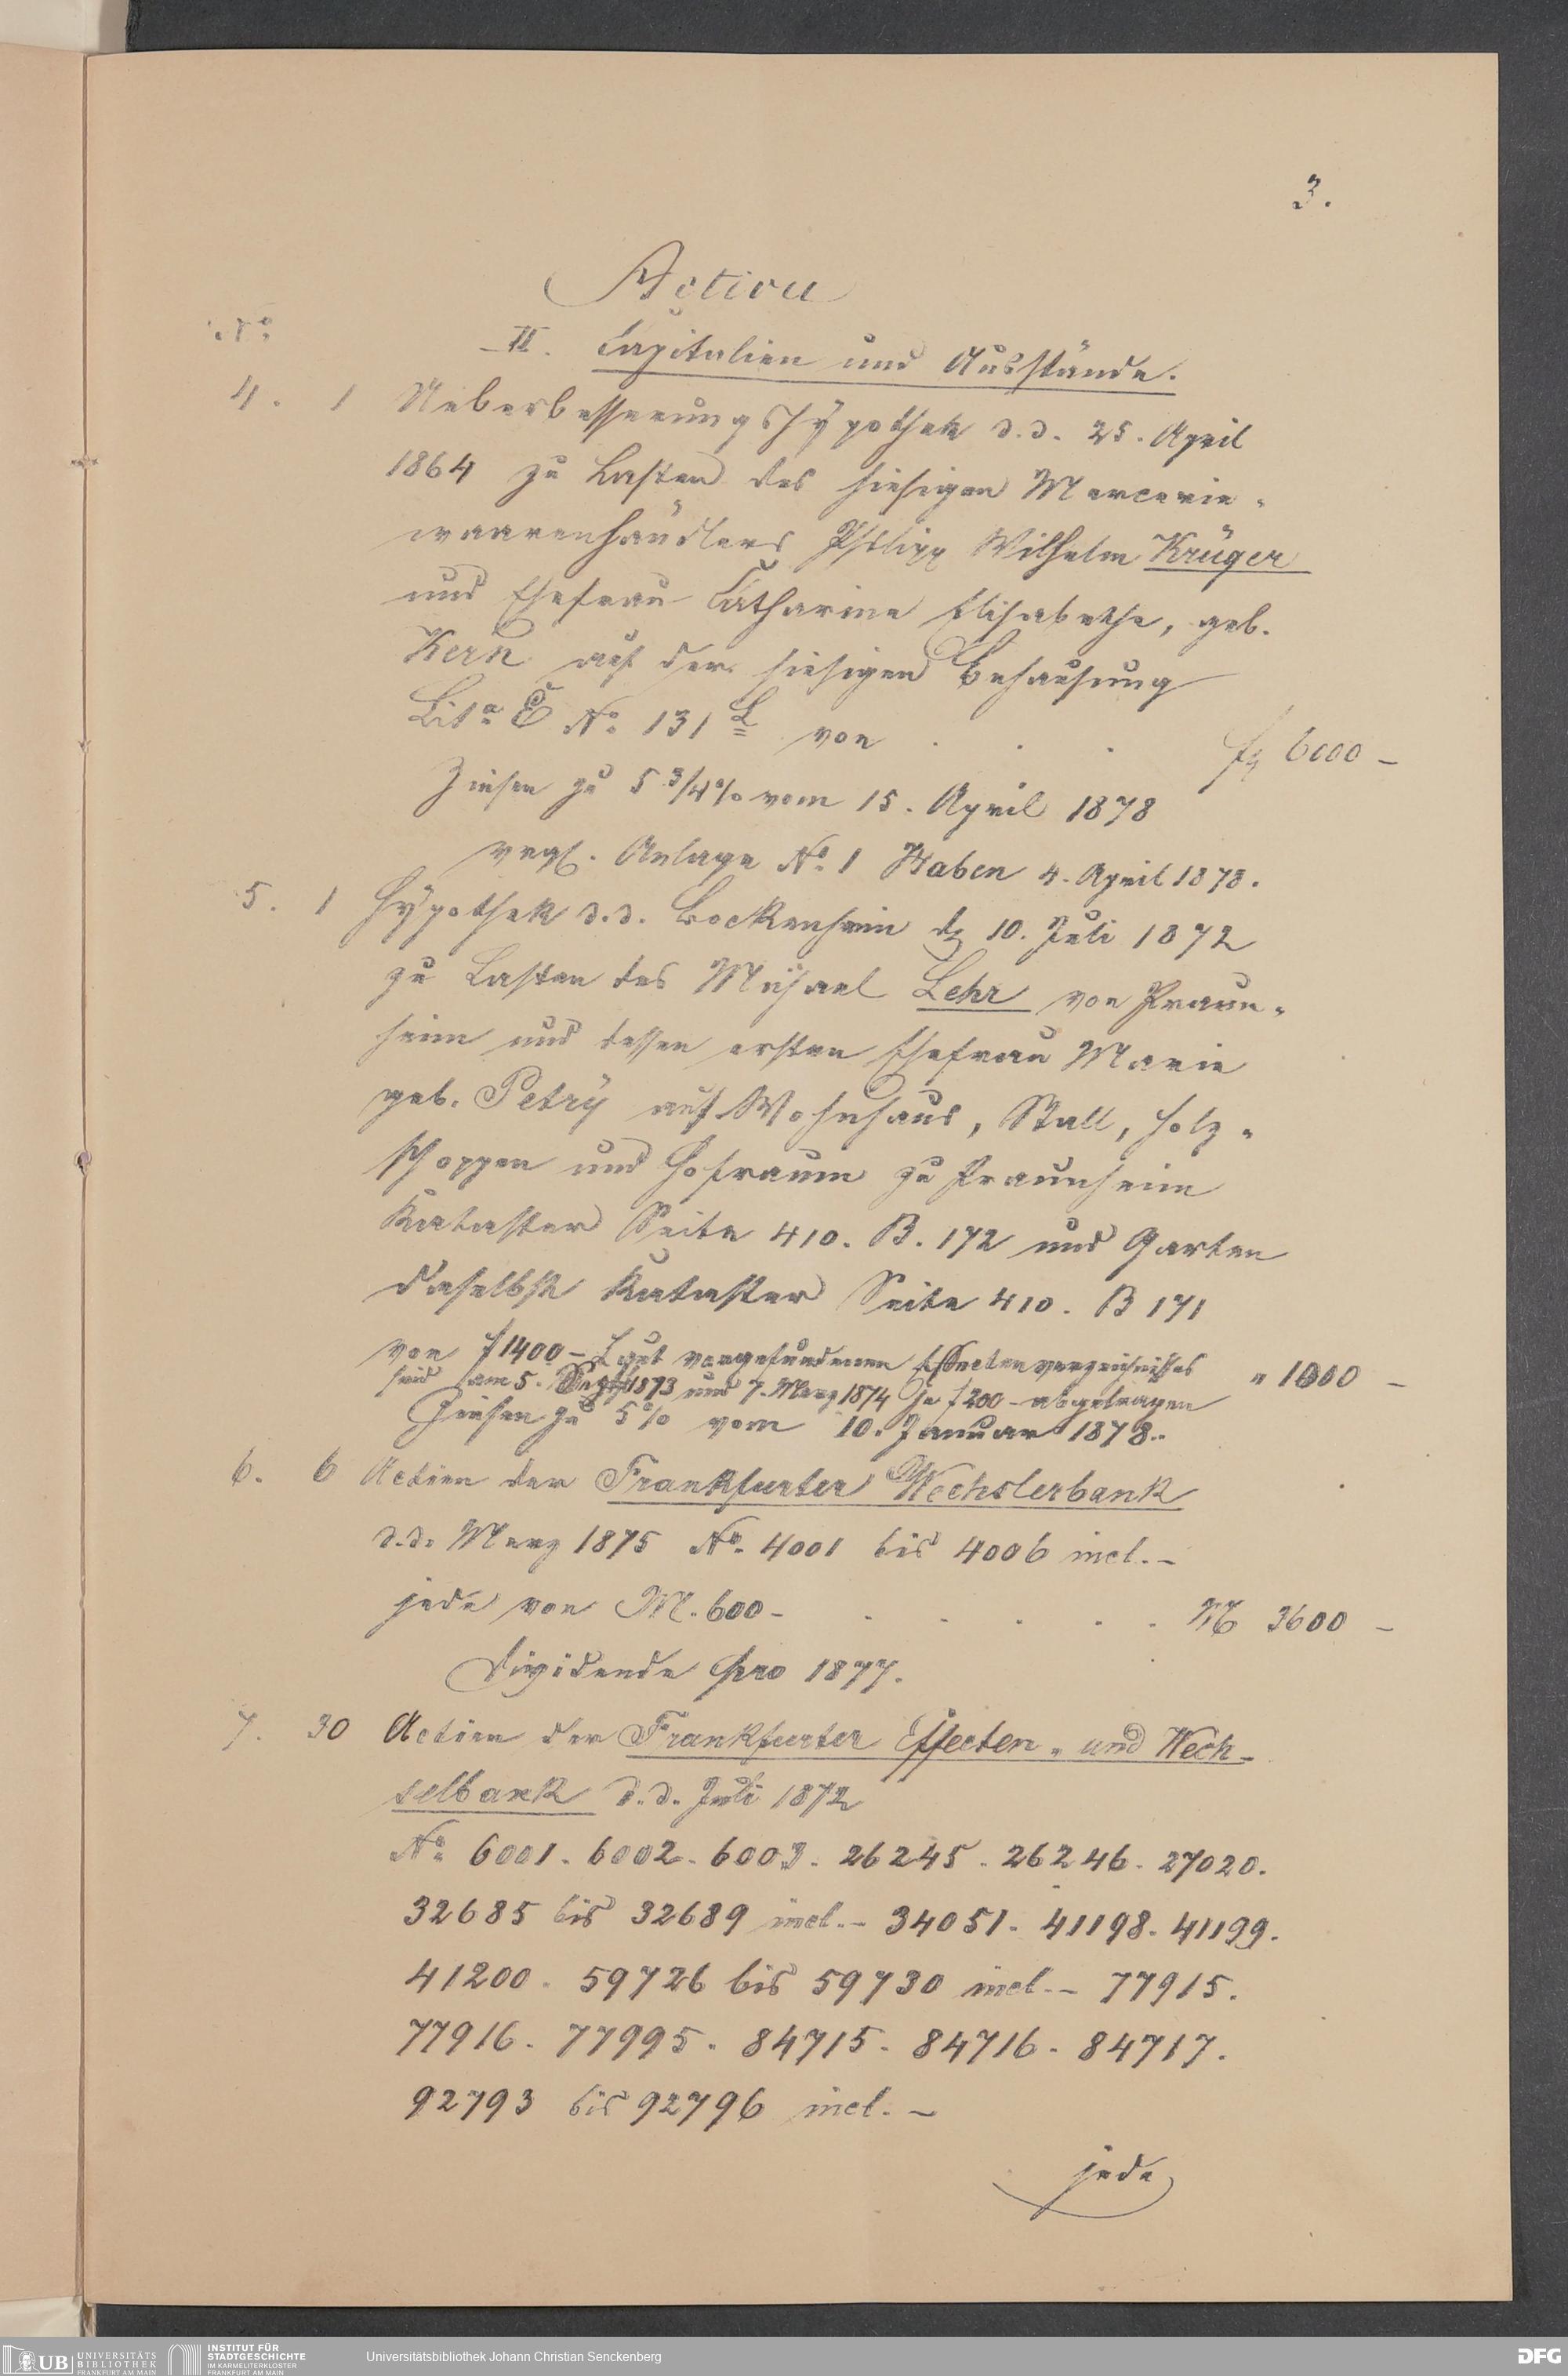 3.
Activa
No.
II. Capitalien und Ausstände.
4. 1 Ueberbesserungshypothek d.d. 25. April
1864 zu Lasten des hiesigen Mercerie-
waarenhändlers Philipp Wilhelm Krüger
und Ehefrau Catharine Elisabethe, geb.
Kern auf der hiesigen Behausung
Lita. E No. 131 L von . . . fl 6000 –
Zinsen zu 5 3/4 % vom 15. April 1878
vergl. Anlage No. 1 Haben 4. April 1878.
5. 1 Hypothek d.d. Bockenheim d. 10. Juli 1872
zu Lasten des Michael Lehr von Praun-
heim und dessen ersten Ehefrau Marie
geb. Petry auf Wohnhaus, Stall, Holz-
schoppen und Hofraum zu Praunheim
Kataster Seite 410. B. 172 und Garten
daselbst Kataster Seite 410. B 171
von f 1400 – Laut vorgefundenem Effectenverzeichnisses
sind am 5. Sept 1873 und 7. März 1874 je f 200 – abgetragen " 1000 –
Zinsen zu 5% vom 10. Januar 1878.
6. 6 Actien der Frankfurter Wechslerbank
d.d. März 1875 No. 4001 bis 4006 incl. –
jede von M. 600 – . . . . . M 3600 –
Dividende pro 1877.
7. 30 Actien der Frankfurter Effecten- und Wech-
selbank d.d. Juli 1872
No. 6001. 6002. 6003. 26245. 26246. 27020.
32685 bis 32689 incl. – 34051. 41198. 41199.
41200. 59726 bis 59730 incl. – 77915.
77916. 77995. 84715. 84716. 84717.
92793 bis 92796 incl. –
jede
UB UNIVERSITÄTS
BIBLIOTHEK
FRANKFURT AM MAIN
INSTITUT FÜR
STADTGESCHICHTE
IM KARMELITERKLOSTER
FRANKFURT AM MAIN
Universitätsbibliothek Johann Christian Senckenberg
DFG